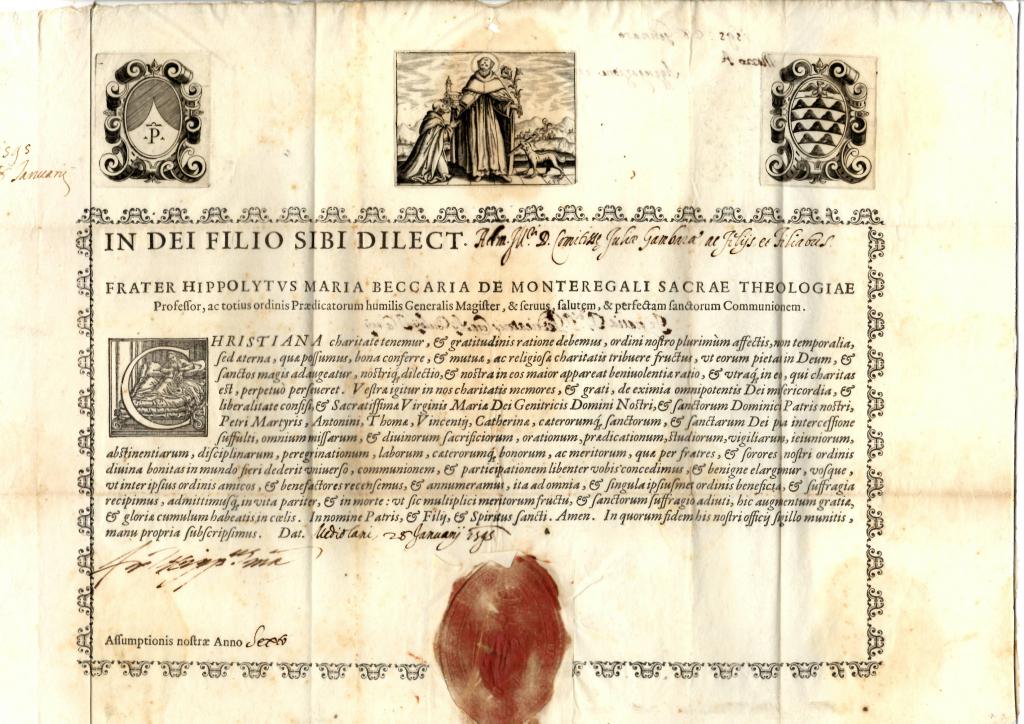 .P.
1595
Januarij
IN DEI FILIO SIBI DILECT. Adm. Ill. D. Comitissæ Juliæ Gambara ac filijs et filiabus.
FRATER HIPPOLYTVS MARIA BECCARIA DE MONTEREGALI SACRAE THEOLOGIAE
Professor, ac totius ordinis Prædicatorum humilis Generalis Magister, & seruus, salutem, & perfectam sanctorum Communionem.
CHRISTIANA charitate tenemur, & gratitudinis ratione debemus, ordini nostro plurimùm affectis, non temporalia,
sed æterna, quæ possumus, bona conferre, & mutuæ, ac religiosæ charitatis tribuere fructus, vt eorum pietas in Deum, &
sanctos magis adaugeatur, nostriq; dilectio, & nostra in eos maior appareat beniuolentiæ ratio, & vtraq; in eo, qui charitas
est, perpetuò perseueret. Vestra igitur in nos charitatis memores, & grati, de eximia omnipotentis Dei misericordia, &
liberalitate confisi, & Sacratissimæ Virginis Mariæ Dei Genitricis Domini Nostri, & sanctorum Dominici Patris nostri,
Petri Martyris, Antonini, Thomæ, Vincentij, Catherinæ, cæterorumq; sanctorum, & sanctarum Dei pia intercessione
suffulti, omnium missarum, & diuinorum sacrificiorum, orationum, prædicationum, studiorum, vigiliarum, ieiuniorum,
abstinentiarum, disciplinarum, peregrinationum, laborum, cæterorumq; bonorum, ac meritorum, quæ per fratres, & sorores nostri ordinis
diuina bonitas in mundo fieri dederit vniuerso, communionem, & participationem libenter vobis concedimus, & benigne elargimur, vosque,
vt inter ipsius ordinis amicos, & benefactores recensemus, & annumeramus, ita ad omnia, & singula ipsiusmet ordinis beneficia, & suffragia
recipimus, admittimusq; in vita pariter, & in morte: vt sic multiplici meritorum fructu, & sanctorum suffragio adiuti, hic augmentum gratiæ,
& gloriæ cumulum habeatis in cœlis. In nomine Patris, & Filij, & Spiritus sancti. Amen. In quorum fidem his nostri officij sigillo munitis,
manu propria subscripsimus. Dat. Mediolani 28 Januarij 1595
Assumptionis nostræ Anno Sexto